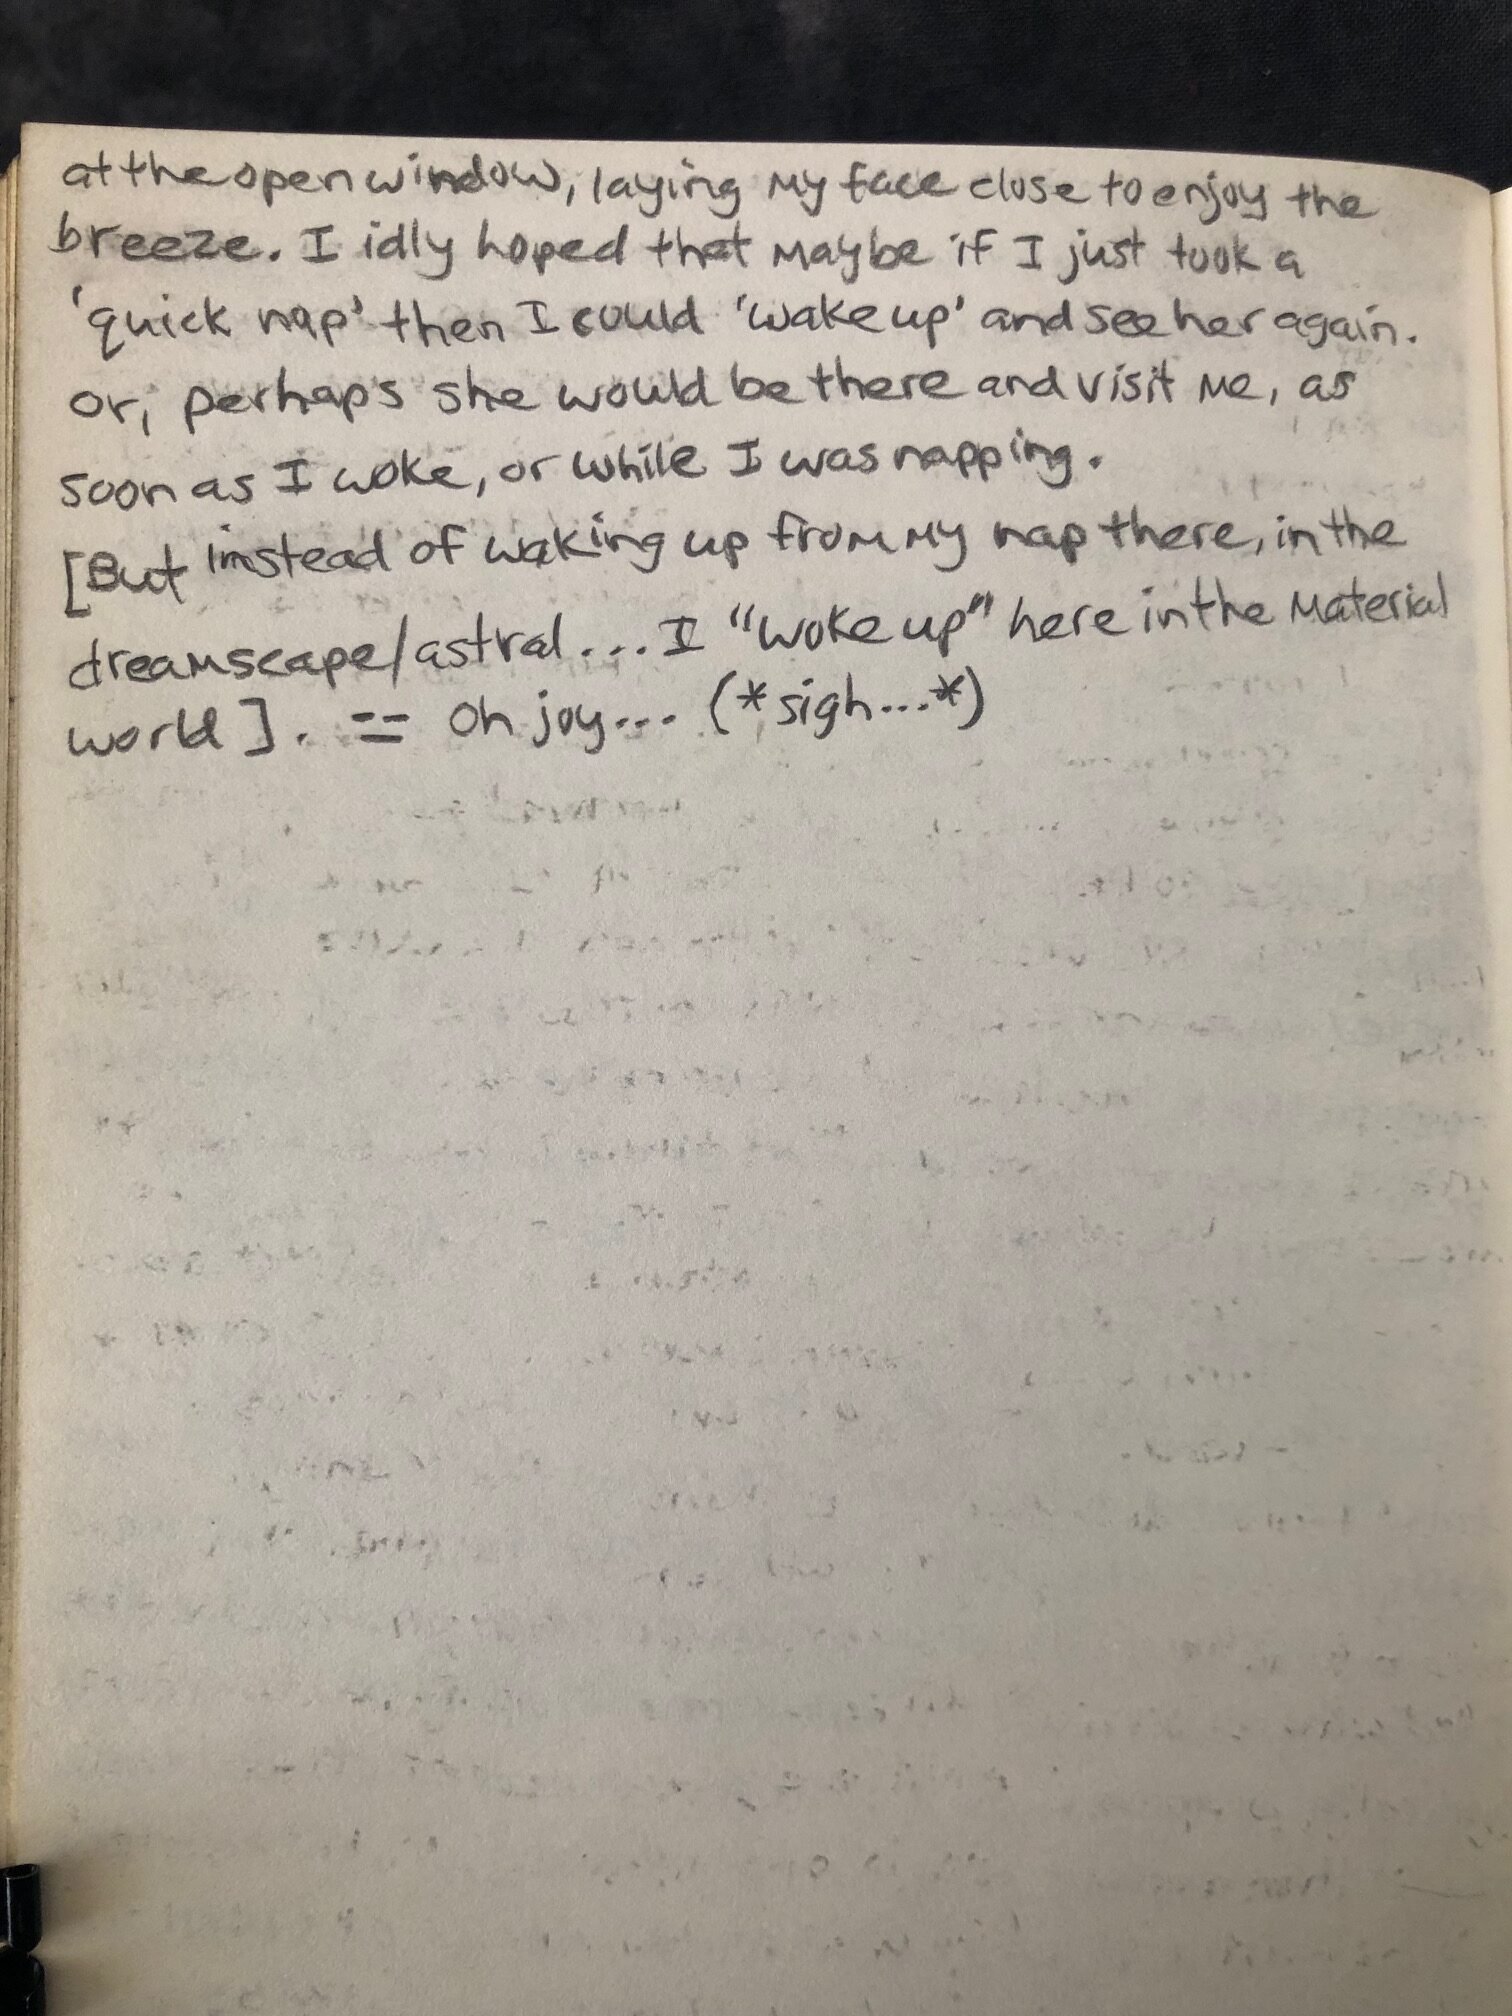 at the open window, laying my face close to enjoy the
breeze. I idly hoped that maybe if I just took a
'quick nap' then I could 'wake up' and see her again.
or, perhaps she would be there and visit me, as
soon as I woke, or while I was napping.
[But instead of waking up from my nap there, in the
dreamscape/astral... I "woke up" here in the Material
world]. == Oh joy... (*sigh...*)